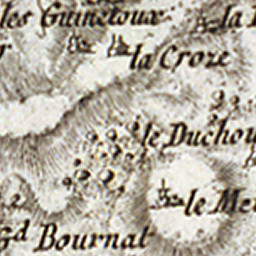 les Guinetoux
la
la Croze
le Duchou
le Me
Gd Bournat